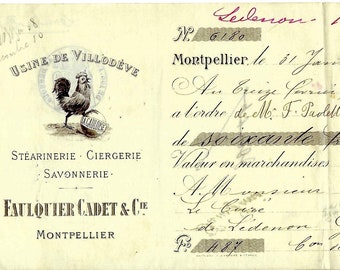 Ledenon
N° 6180
Montpellier, le 31 Janv
Au Treize Février
à l'ordre de M. F. Paolett
de soixante
Valeur en marchandises
A Monsieur
Le Curé
de Lédenon
F° 487 Bon
USINE DE VILLODÈVE
STÉARINERIE - CIERGERIE
SAVONNERIE
FAULQUIER CADET & CIE
MONTPELLIER